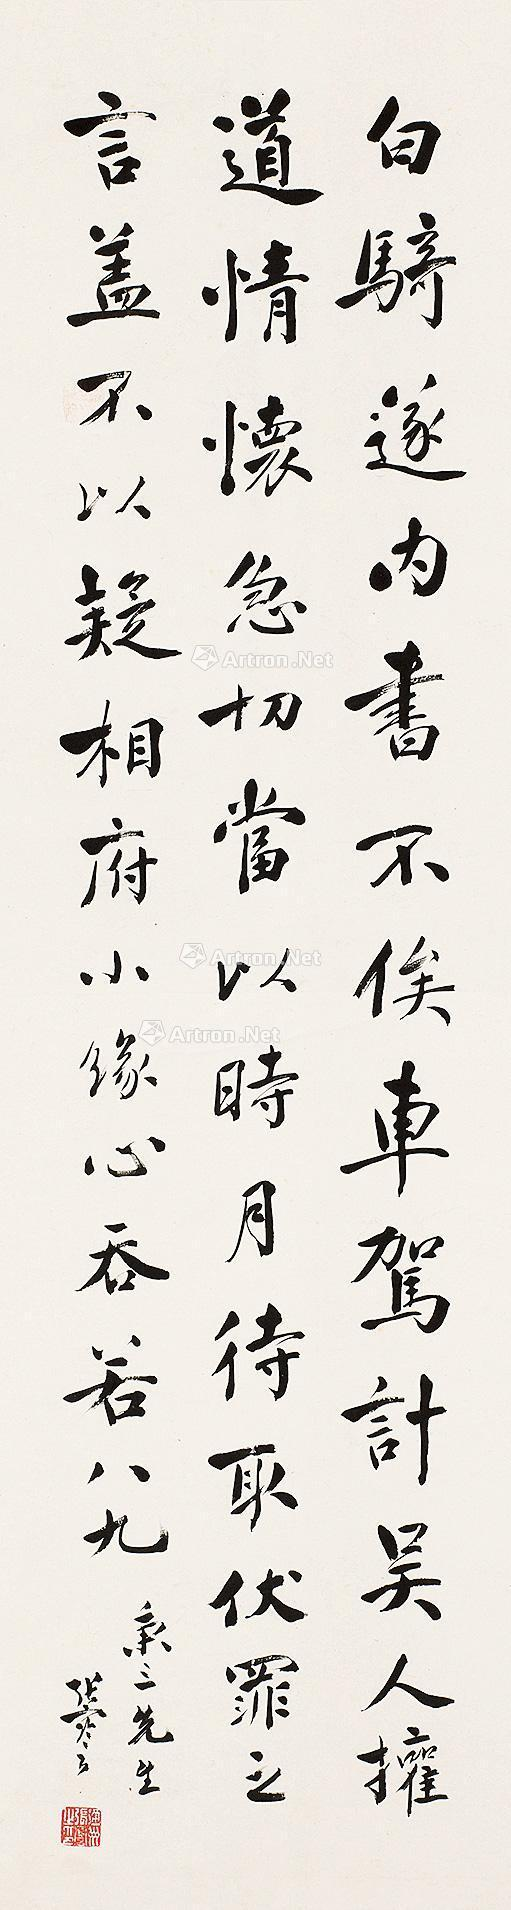 白騎遂内書不俟車駕計吴人擁
道情懷急切當以時月待取伏罪之
言盖不以疑相府小緣心吞若八九
秉三先生
張謇
Artron.Net
Artron.Net
Artron.Net